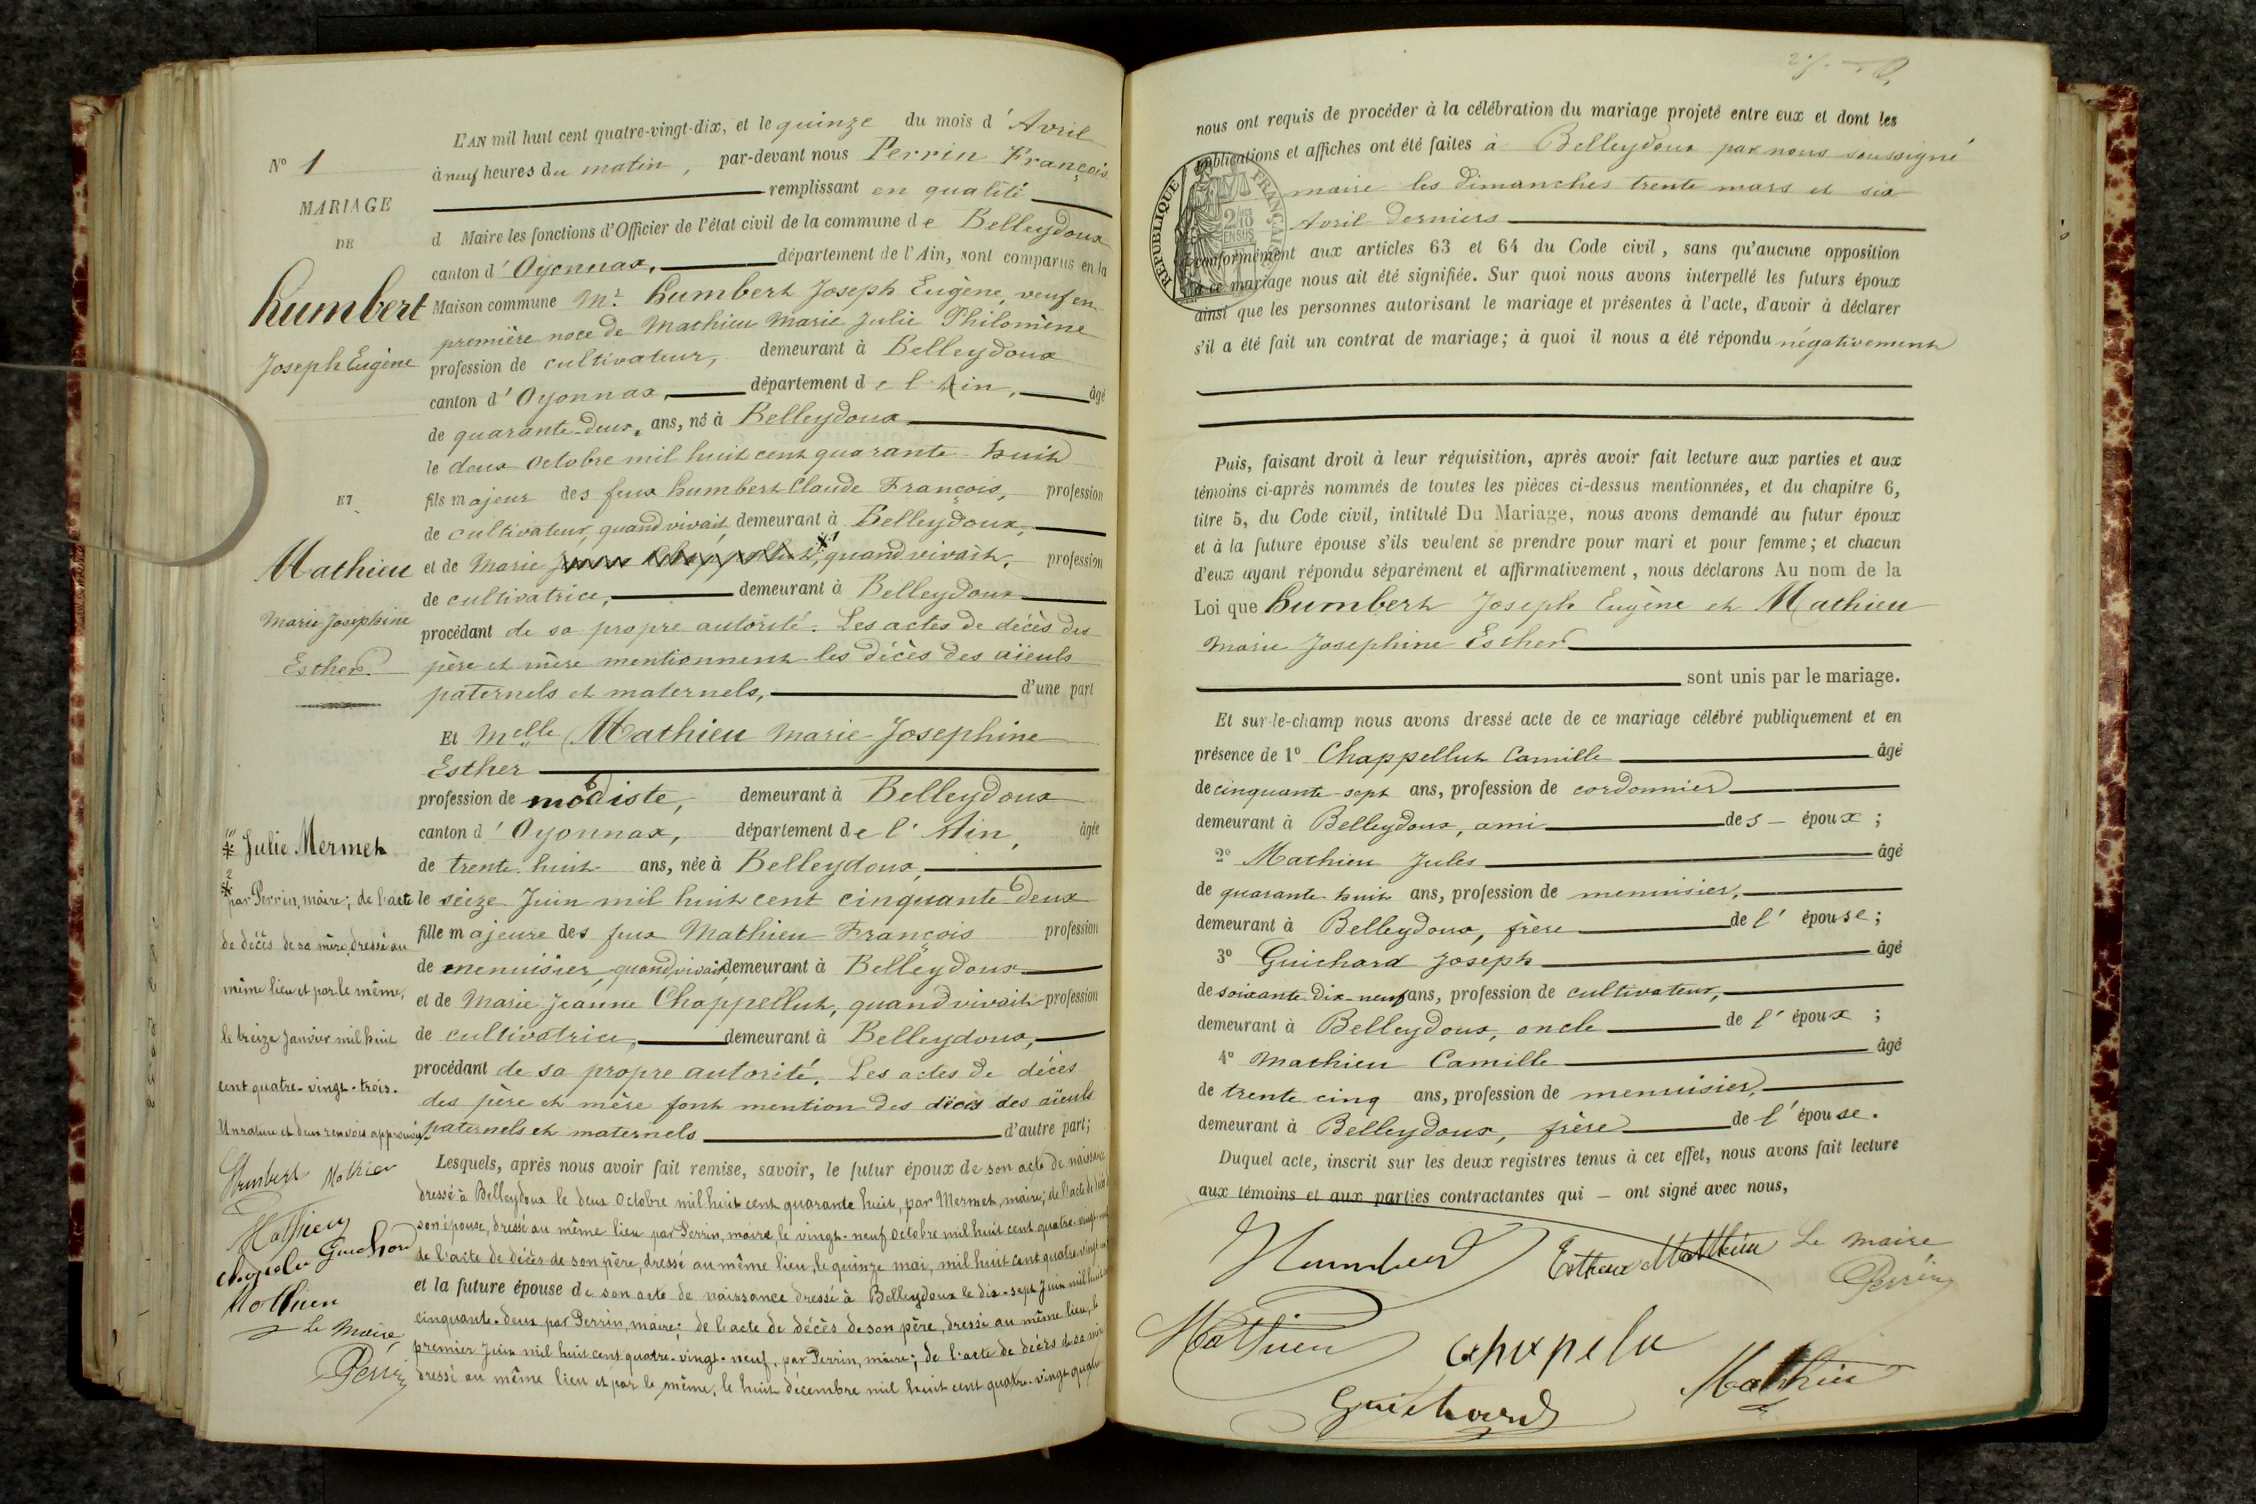 N° 1
MARIAGE
DE
humbert
Joseph Eugène
ET
Mathieu
Marie Josephine
Esther.
L'AN mil huit cent quatre-vingt-dix, et le quinze du mois d'Avril
à neuf heures du matin, par-devant nous Perrin François
remplissant en qualité
d Maire les fonctions d'Officier de l'état civil de la commune de Belleydoux
canton d'Oyonnax, département de l'Ain, sont comparus en la
Maison commune Mr. humbert Joseph Eugène, veuf en
première noce de Mathieu Marie Julie Philomène
profession de cultivateur, demeurant à Belleydoux
canton d'Oyonnax, département de l'Ain, âgé
de quarante-deux, ans, né à Belleydoux
le deux Octobre mil huit cent quarante-huit
fils majeur des feux humbert Claude François, profession
de cultivateur, quand vivait, demeurant à Belleydoux,
et de Marie *1, quand vivait, profession
de cultivatrice, demeurant à Belleydoux
procédant de sa propre autorité. Les actes de décès des
père et mère mentionnent les décès des aïeuls
paternels et maternels, d'une part
Et Melle Mathieu Marie Josephine
Esther
profession de modiste, demeurant à Belleydoux
canton d'Oyonnax, département de l'Ain, âgée
de trente-huit ans, née à Belleydoux,
le seize Juin mil huit cent cinquante-deux
fille majeure des feux Mathieu François profession
de menuisier, quand vivait, demeurant à Belleydoux
et de Marie Jeanne Chappellut, quand vivait profession
de cultivatrice, demeurant à Belleydoux,
procédant de sa propre autorité. Les actes de décès
des père et mère font mention des décès des aïeuls
paternels et maternels d'autre part;
Lesquels, après nous avoir fait remise, savoir, le futur époux de son acte de naissance
dressé à Belleydoux le deux Octobre mil huit cent quarante huit, par Mermet, maire; de l'acte de décès
son épouse, dressé au même lieu par Perrin, maire, le vingt-neuf octobre mil huit cent quatre-vingt
de l'acte de décès de son père, dressé au même lieu, le quinze mai, mil huit cent quatre-vingt
et la future épouse de son acte de naissance dressé à Belleydoux le dix-sept Juin mil huit
cinquante-deux par Perrin, maire; de l'acte de décès de son père, dressé au même lieu, le
premier Juin mil huit cent quatre-vingt-neuf, par Perrin, maire; de l'acte de décès de sa mère
dressé au même lieu et par le même, le huit décembre mil huit cent quatre-vingt-quatre
*1 Julie Mermet
*2 par Perrin, maire; de l'acte
de décès de sa mère, dressé au
même lieu et par le même,
le treize Janvier mil huit
cent quatre-vingt-trois.
Un rature et deux renvois approuvés
Humbert Mathieu
Mathieu
Chapelu Guichard
Mathieu
Le Maire
Perrin
nous ont requis de procéder à la célébration du mariage projeté entre eux et dont les
publications et affiches ont été faites à Belleydoux par nous soussigné
maire les dimanches trente mars et six
Avril derniers
conformément aux articles 63 et 64 du Code civil, sans qu'aucune opposition
à ce mariage nous ait été signifiée. Sur quoi nous avons interpellé les futurs époux
ainsi que les personnes autorisant le mariage et présentes à l'acte, d'avoir à déclarer
s'il a été fait un contrat de mariage; à quoi il nous a été répondu négativement
RÉPUBLIQUE FRANÇAISE
2/10 EN SUS
Puis, faisant droit à leur réquisition, après avoir fait lecture aux parties et aux
témoins ci-après nommés de toutes les pièces ci-dessus mentionnées, et du chapitre 6,
titre 5, du Code civil, intitulé Du Mariage, nous avons demandé au futur époux
et à la future épouse s'ils veulent se prendre pour mari et pour femme; et chacun
d'eux ayant répondu séparément et affirmativement, nous déclarons Au nom de la
Loi que humbert Joseph Eugène et Mathieu
Marie Josephine Esther
sont unis par le mariage.
Et sur-le-champ nous avons dressé acte de ce mariage célébré publiquement et en
présence de 1° Chappellut Camille âgé
de cinquante-sept ans, profession de cordonnier
demeurant à Belleydoux, ami des époux;
2° Mathieu Jules âgé
de quarante huit ans, profession de menuisier,
demeurant à Belleydoux, frère de l'épouse;
3° Guichard Joseph âgé
de soixante-dix-neuf ans, profession de cultivateur,
demeurant à Belleydoux, oncle de l'époux;
4° Mathieu Camille âgé
de trente cinq ans, profession de menuisier,
demeurant à Belleydoux, frère de l'épouse.
Duquel acte, inscrit sur les deux registres tenus à cet effet, nous avons fait lecture
aux témoins et aux parties contractantes qui – ont signé avec nous,
Humbert Esther Mathieu Le Maire
Perrin
Mathieu chapelu Mathieu
Guichard